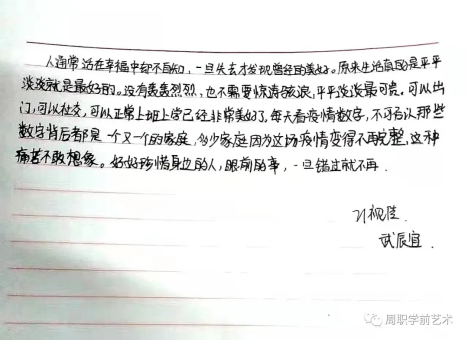 人通常活在幸福中却不自知，一旦失去才发现曾经的美好。原来生活真的是平平
淡淡就是最好的。没有轰轰烈烈，也不需要惊涛骇浪，平平淡淡最可贵。可以出
门，可以社交，可以正常上班上学已经非常美好了，每天看疫情数字，不可否认那些
数字背后都是一个又一个的家庭，多少家庭因为这场疫情变得不再完整，这种
痛苦不敢想象。好好珍惜身边的人，眼前的事，一旦错过就不再.
武辰宜.
周职学前艺术